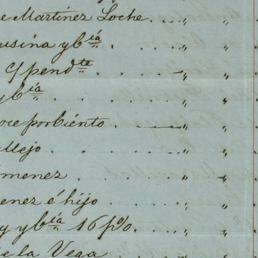 e Martinez Loche . . . " "
usina y bía . . . . " "
Y pendte . . . . . " "
y bía . . . . . " "
oce por Ciento . . " "
llejo . . . . . " "
imenez . . . . " "
enez é hijo . . . " "
y y bía 16 p% . . " "
e la Vega . . . " "